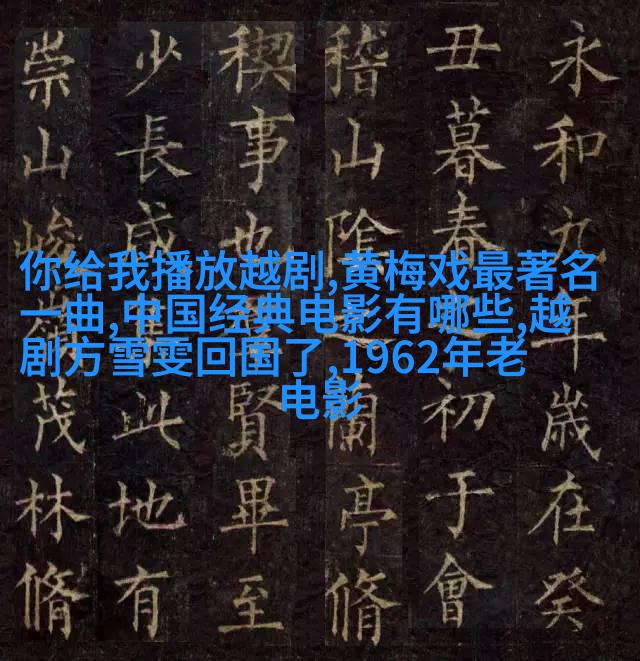 你给我播放越剧,黄梅戏最著名
一曲,中国经典电影有哪些,越
剧方雪雯回国了,1962年老
电影
永和九年歲在癸
丑暮春初于會
稽山陰蘭亭脩
禊事也賢畢至
少長咸此地有
崇山峻茂林脩